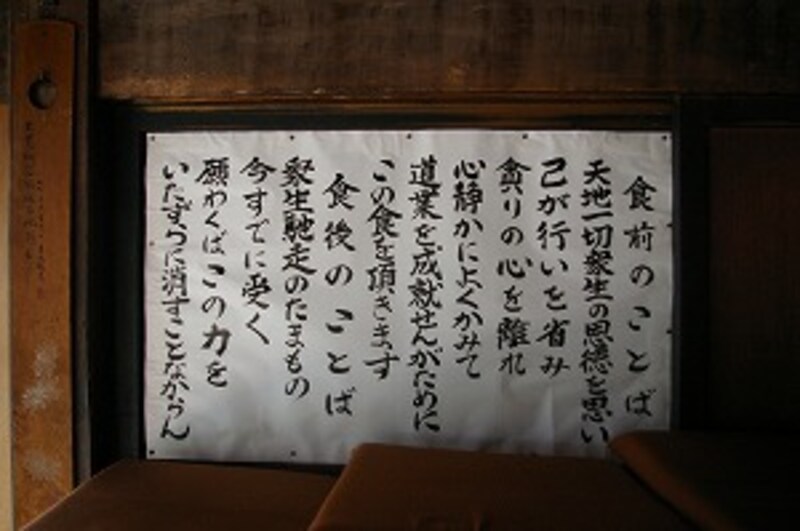 食前のことば
天地一切衆生の恩徳を思い
己が行いを省み
貪りの心を離れ
心静かによくかみて
道業を成就せんがために
この食を頂きます
食後のことば
衆生馳走のたまもの
今すでに受く
願わくばこの力を
いたずらに消すことなからん